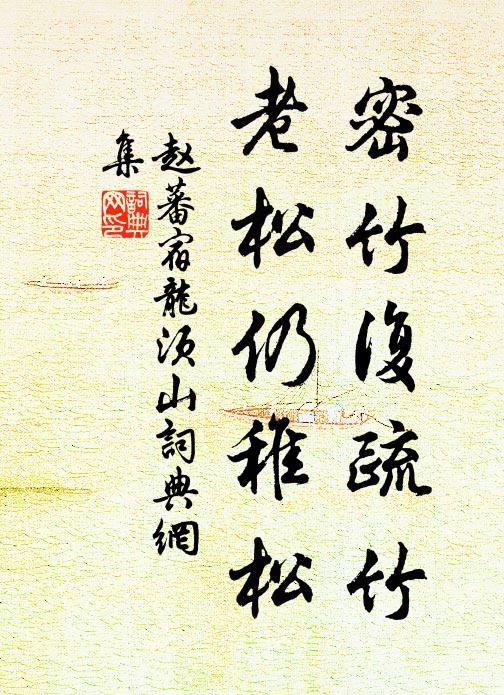 密竹復疏竹
老松仍稚松
赵蕃宿龍須山詞典網
集
詞典
网印